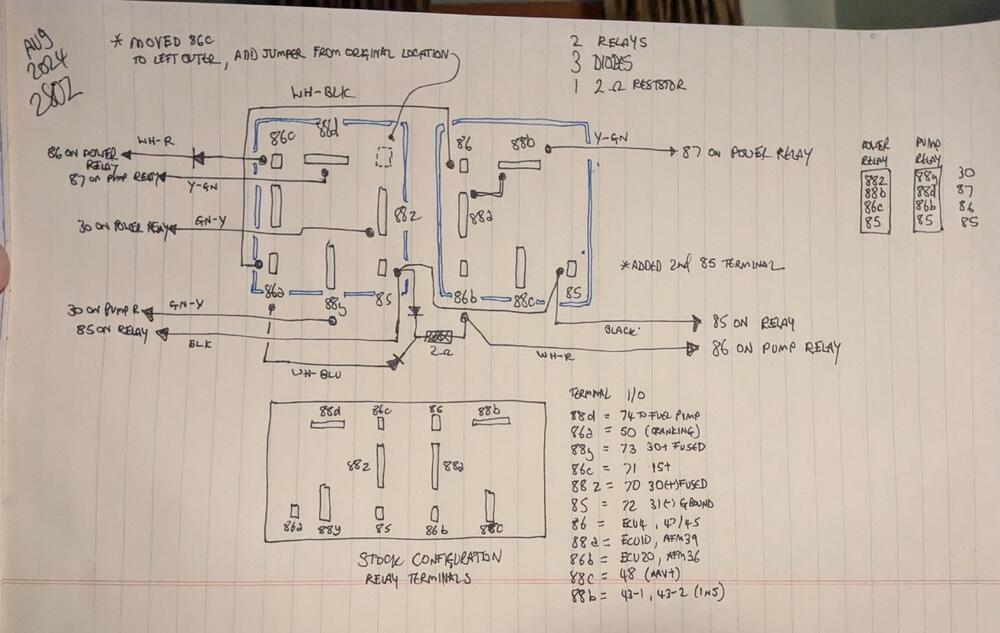 AUG
2024
280Z
* MOVED 86C
TO LEFT OUTER, ADD JUMPER FROM ORIGINAL LOCATION
2 RELAYS
3 DIODES
1 2Ω RESTSTOR
WH-BLK
86c 88d
86 88b
WH-R
86 ON POWER RELAY
87 ON PUMP RELAY
Y-GN
Y-GN
87 ON POWER RELAY
POWER RELAY
PUMP RELAY
88z 88y 30
88b 88d 87
86c 86b 86
85 85 85
88z
88a
30 ON POWER RELAY
GN-Y
* ADDED 2nd 85 TERMINAL
86a 88y 85
86b 88c 85
30 ON PUMP R
GN-Y
85 ON RELAY
BLK
2Ω
WH-BLU
BLACK
85 ON RELAY
WH-R
86 ON PUMP RELAY
88d 86c 86 88b
88z 88a
86a 88y 85 86b 88c
STOCK CONFIGURATION
RELAY TERMINALS
TERMINAL I/O
88d = 74 TO FUEL PIMP
86a = 50 (CRANKING)
88y = 73 30+ FUSED
86c = 71 15+
88z = 70 30(+) FUSED
85 = 72 31(-) GROUND
86 = ECU4, 47/45
88a = ECU10, AFM39
86b = ECU20, AFM36
88c = 48 (AAV+)
88b = 43-1, 43-2 (INJ)